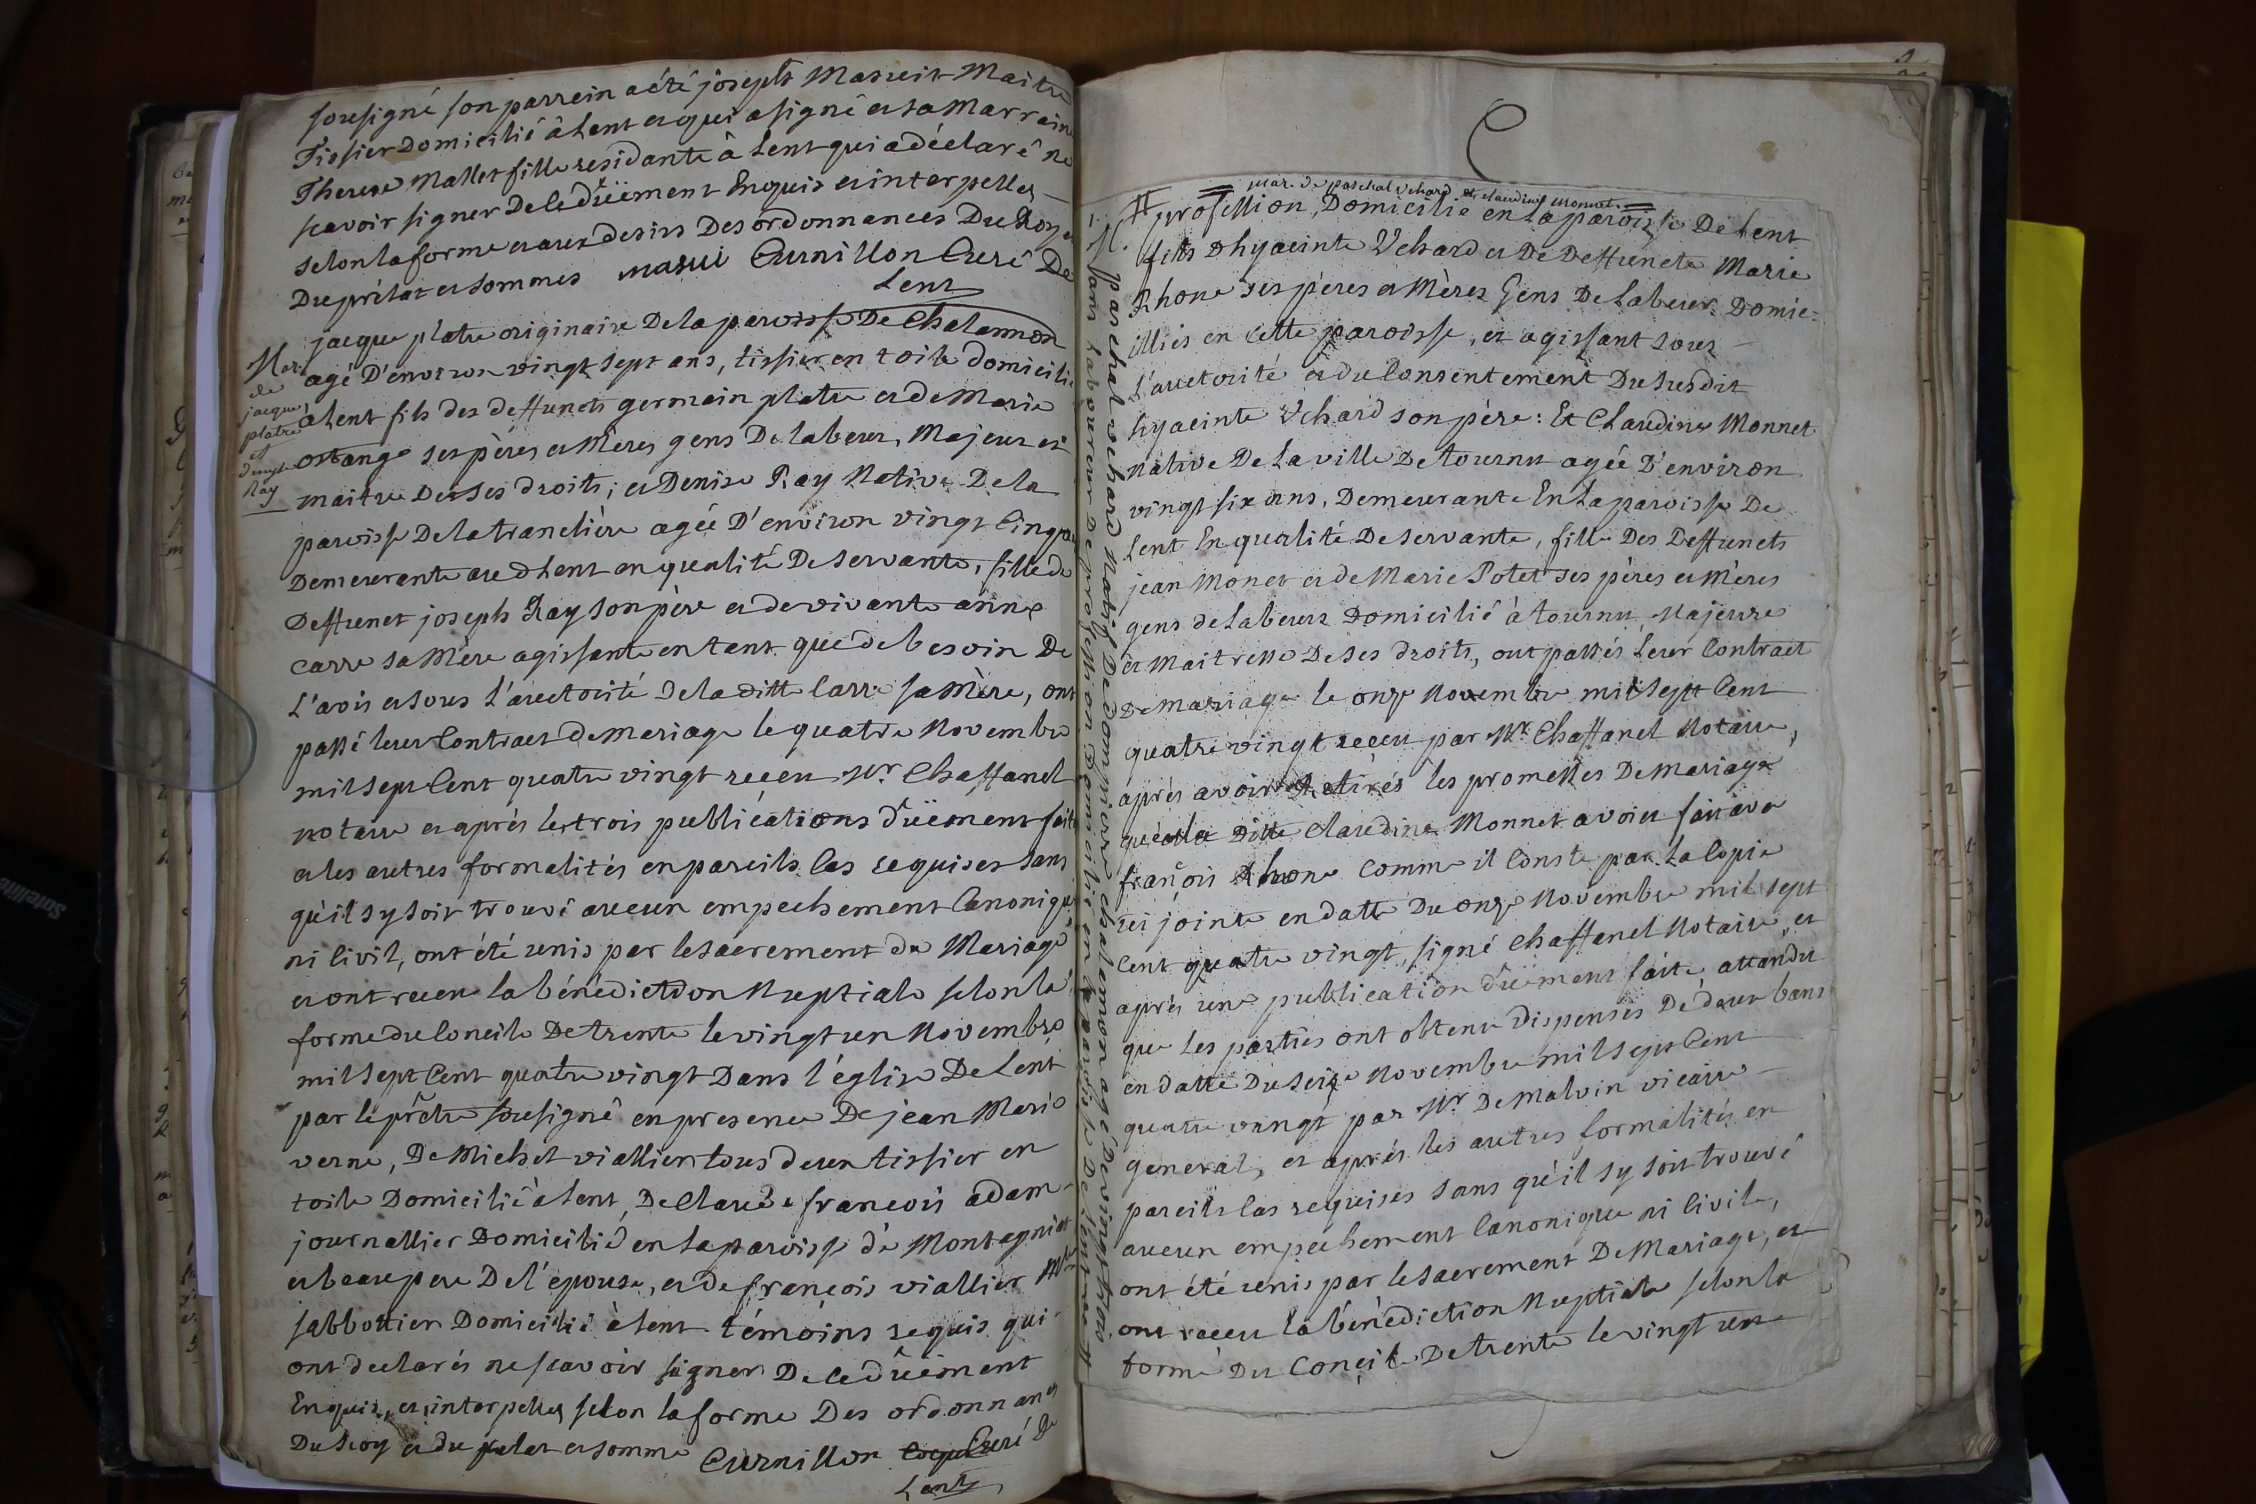 sousigné son parrein a été joseph Masuit Maitre
Tissier Domicilié à Lent et qui a signé et sa Marraine
Therese Mallet fille residante à Lent qui a déclaré ne
scavoir signer De ce düement Enquis et interpellés
selon la forme et aux desirs Des ordonnances Du Roy et
Du prélat et sommes masui Curnillon Curé De
Lent
Mar.
de
jacque
platre
et
denyse
Ray
jacque platre originaire De la paroisse De Chalamon
agé D'environ vingt sept ans, tissier en toile domicilié
a Lent fils des deffuncts germain platre et de Marie
ostange ses pères et Mères gens De labeur, Majeur et
maitre De ses droits; et Denise Ray Native De la
paroisse De la tranclière agée D'environ vingt Cinq ans
Demeurante aud Lent en qualité De servante, fille de
Deffunct joseph Ray son père et de vivante anne
carre sa Mère agissante en tant que de besoin De
L'avis et sous l'auctorité De la ditte Carre sa Mère, ont
passé leur Contract de Mariage le quatre Novembre
mil sept Cent quatre vingt receu Mr Chaffanel
notaire et après les trois publications düement faites
et les autres formalités en pareils Cas requises sans
qu'il sy soit trouvé aucun empechement Canonique
ni Civil, ont été unis par le sacrement du Mariage
et ont receu la bénédiction Nuptiale selon la
forme du Concile De trente le vingt un Novembre
mil sept Cent quatre vingt Dans l'église De Lent
par le prêtre sousigné en presence De jean Marie
verne, De Michel viallier tous deux tissier en
toile Domicilié à Lent, De Claude françois adam
journallier Domicilié en la paroisse de Montagniat
et beaupere De l'epouse, et de françois viallier Mtre
sabbottier Domicilié à Lent témoins requis qui
ont declarés ne scavoir signer De ce düement
Enquis, et interpellés selon la forme Des ordonnances
Du Roy et du prelat et somme Curnillon Curé de
Lent
mar. de paschal Vehard et claudine monnet
M. paschal vehard Natif De dompierre chalamon agé De vingt trois
ans laboureur De profession Domicilié en la paroisse De Lent
profession, Domicilié en la paroisse De Lent
fils Dhyacinte Vehard et De Deffuncte Marie
Rhone ses pères et Mères Gens De Labeur Domic=
illiés en cette paroisse, et agissant sous
L'auctorité et du Consentement Du susdit
hyacinte Vehard son père: Et Claudine Monnet
native De la ville De tournu agée D'environ
vingt six ans, Demeurante En la paroisse De
Lent En qualité De servante, fille Des Deffuncts
jean Monet et de Marie Potet ses pères et Mères
gens de Labeur Domicilié à tournu, Majeure
et Maitresse De ses droits, ont passés Leur Contract
De mariage le onze Novembre mil sept Cent
quatre vingt receu par Mr Chaffanel Notaire,
après avoir retirés les promesses De Mariage
que la Ditte Claudine Monnet avoit fait avec
françois Rhone Comme il Conste par La Copie
ici jointe en datte Du onze Novembre mil sept
Cent quatre vingt, signé Chaffanel Notaire, et
après une publication düement faite, attendu
que les parties ont obtenu dispenses De deux bans
en datte Du seize Novembre mil sept Cent
quatre vingt par Mr De Malvin vicaire
general, et après les autres formalités en
pareils Cas requises sans qu'il sy soit trouvé
aucun empechement Canonique ni Civile,
ont été unis par le sacrement De Mariage, et
ont receu la bénédiction Nuptiale selon la
forme Du Concile De trente le vingt un